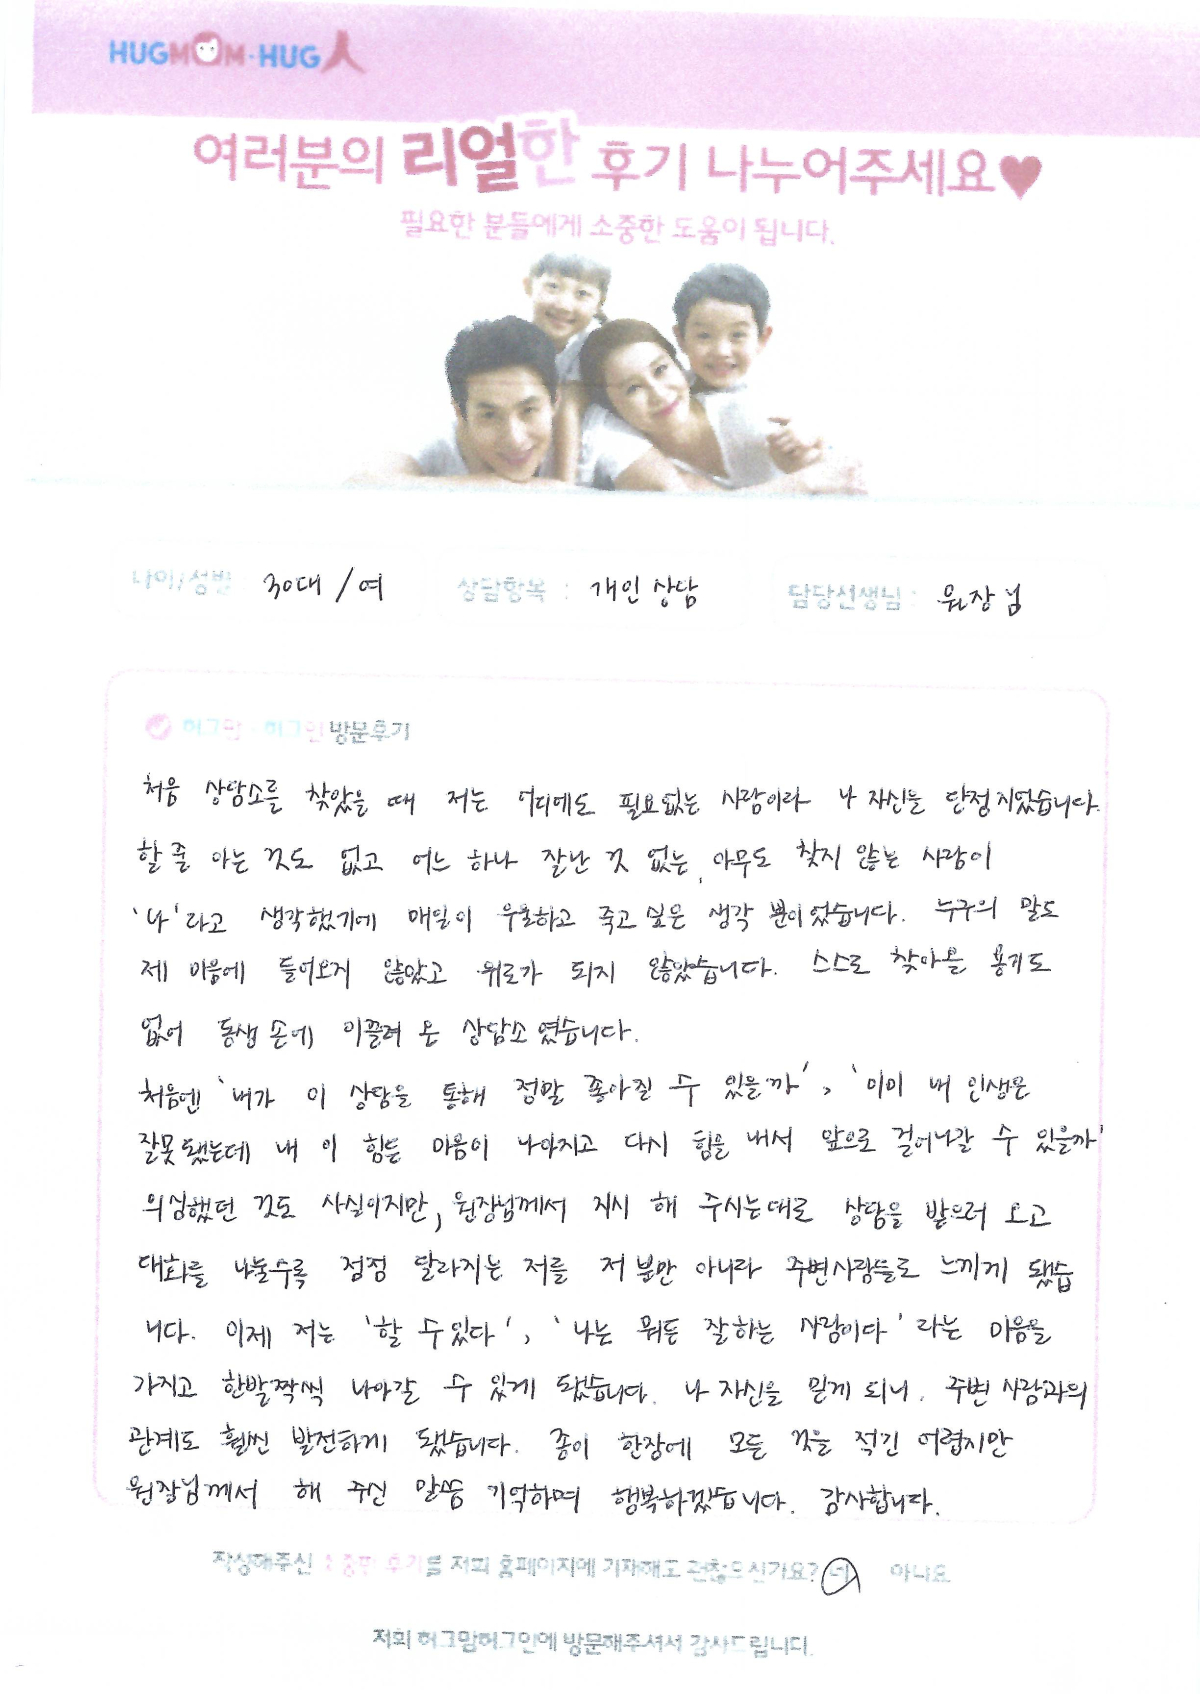 HUGMOM·HUG人
여러분의 리얼한 후기 나누어주세요♥
필요한 분들에게 소중한 도움이 됩니다.
나이/성별 : 30대 / 여 상담항목 : 개인 상담 담당선생님 : 원장님
허그맘·허그인 방문후기
처음 상담소를 찾았을 때 저는 어디에도 필요없는 사람이라 나 자신을 단정지었습니다.
할 줄 아는 것도 없고 어느 하나 잘난 것 없는, 아무도 찾지 않는 사람이
'나'라고 생각했기에 매일이 우울하고 죽고 싶은 생각 뿐이었습니다. 누구의 말도
제 마음에 들어오지 않았고 위로가 되지 않았습니다. 스스로 찾아올 용기도
없어 동생 손에 이끌려 온 상담소였습니다.
처음엔 '내가 이 상담을 통해 정말 좋아질 수 있을까', '이미 내 인생은
잘못됐는데 내 이 힘든 마음이 나아지고 다시 힘을 내서 앞으로 걸어나갈 수 있을까'
의심했던 것도 사실이지만, 원장님께서 지시 해 주시는대로 상담을 받으러 오고
대화를 나눌수록 점점 달라지는 저를 저 뿐만 아니라 주변사람들로 느끼게 됐습
니다. 이제 저는 '할 수 있다', '나는 뭐든 잘하는 사람이다' 라는 마음을
가지고 한발짝씩 나아갈 수 있게 됐습니다. 나 자신을 믿게 되니, 주변 사람과의
관계도 훨씬 발전하게 됐습니다. 종이 한장에 모든 것을 적긴 어렵지만
원장님께서 해 주신 말씀 기억하며 행복하겠습니다. 감사합니다.
작성해주신 :중한 후기를 저희 홈페이지에 기재해도 괜찮으신가요? 네 아니요
저희 허그맘허그인에 방문해주셔서 감사드립니다.